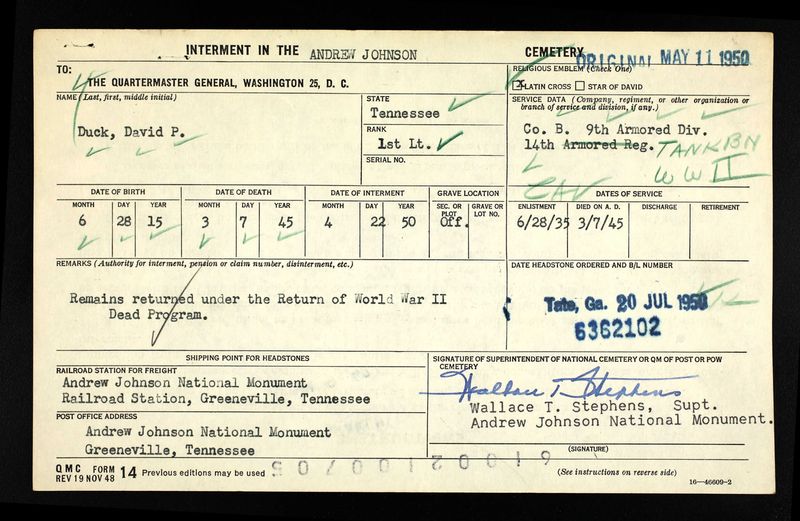 INTERMENT IN THE ANDREW JOHNSON CEMETERY
ORIGINAL MAY 11 1950
TO:
THE QUARTERMASTER GENERAL, WASHINGTON 25, D. C.
RELIGIOUS EMBLEM (Check One)
X LATIN CROSS STAR OF DAVID
NAME (Last, first, middle initial)
Duck, David P.
STATE
Tennessee
RANK
1st Lt.
SERIAL NO.
SERVICE DATA (Company, regiment, or other organization or
branch of service and division, if any.)
Co. B. 9th Armored Div.
14th Armored Reg. TANK BN
WW II
CAV
DATE OF BIRTH
MONTH DAY YEAR
6 28 15
DATE OF DEATH
MONTH DAY YEAR
3 7 45
DATE OF INTERMENT
MONTH DAY YEAR
4 22 50
GRAVE LOCATION
SEC. OR PLOT GRAVE OR LOT NO.
Off.
DATES OF SERVICE
ENLISTMENT DIED ON A. D. DISCHARGE RETIREMENT
6/28/35 3/7/45
REMARKS (Authority for interment, pension or claim number, disinterment, etc.)
Remains returned under the Return of World War II
Dead Program.
DATE HEADSTONE ORDERED AND B/L NUMBER
Tate, Ga. 20 JUL 1950
6362102
SHIPPING POINT FOR HEADSTONES
RAILROAD STATION FOR FREIGHT
Andrew Johnson National Monument
Railroad Station, Greeneville, Tennessee
POST OFFICE ADDRESS
Andrew Johnson National Monument
Greeneville, Tennessee
SIGNATURE OF SUPERINTENDENT OF NATIONAL CEMETERY OR QM OF POST OR POW
CEMETERY
Wallace T. Stephens
Wallace T. Stephens, Supt.
Andrew Johnson National Monument.
(SIGNATURE)
QMC FORM 14 Previous editions may be used
REV 19 NOV 48
(See instructions on reverse side)
16—46609-2